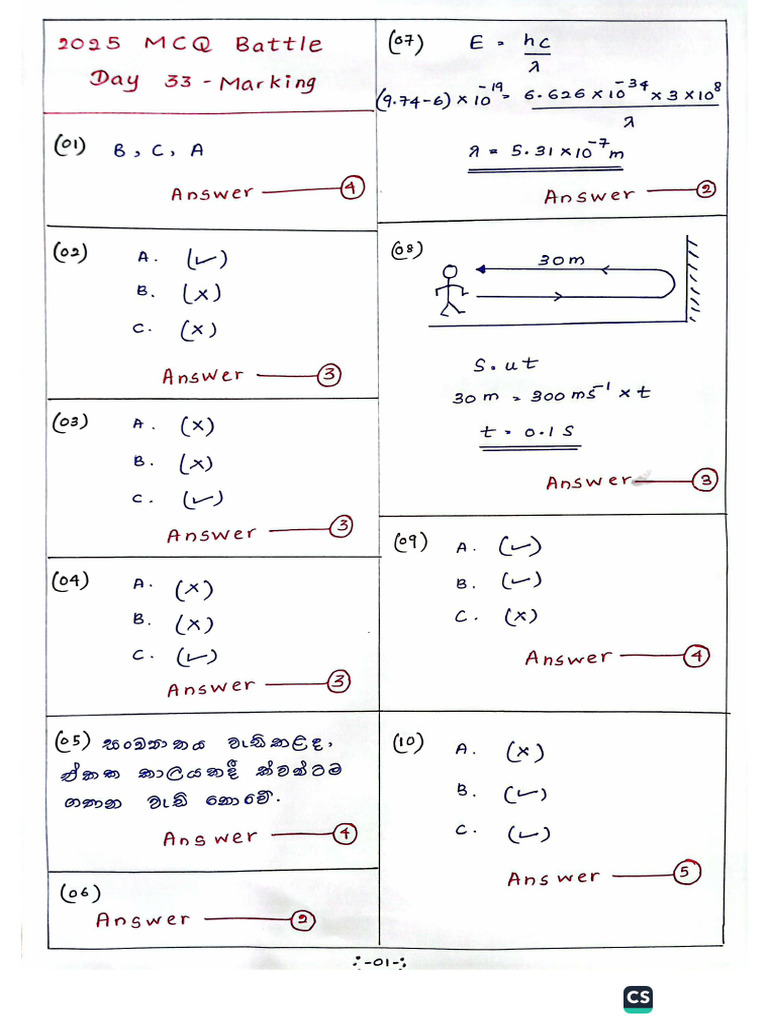 2025 MCQ Battle
Day 33 - Marking
(01) B, C, A
Answer — 4
(02) A. (✓)
B. (×)
C. (×)
Answer — 3
(03) A. (×)
B. (×)
C. (✓)
Answer — 3
(04) A. (×)
B. (×)
C. (✓)
Answer — 3
(05) සංඛ්‍යාතය වැඩිකළද,
ඒකක කාලයකදී ක්වන්ටම
ගණන වැඩි නොවේ.
Answer — 4
(06)
Answer — 2
(07) E = hc/λ
(9.74-6) × 10⁻¹⁹ = 6.626 × 10⁻³⁴ × 3 × 10⁸ / λ
λ = 5.31 × 10⁻⁷ m
Answer — 2
(08)
30 m
S = ut
30 m = 300 ms⁻¹ × t
t = 0.1 S
Answer — 3
(09) A. (✓)
B. (✓)
C. (×)
Answer — 4
(10) A. (×)
B. (✓)
C. (✓)
Answer — 5
-01-
CS